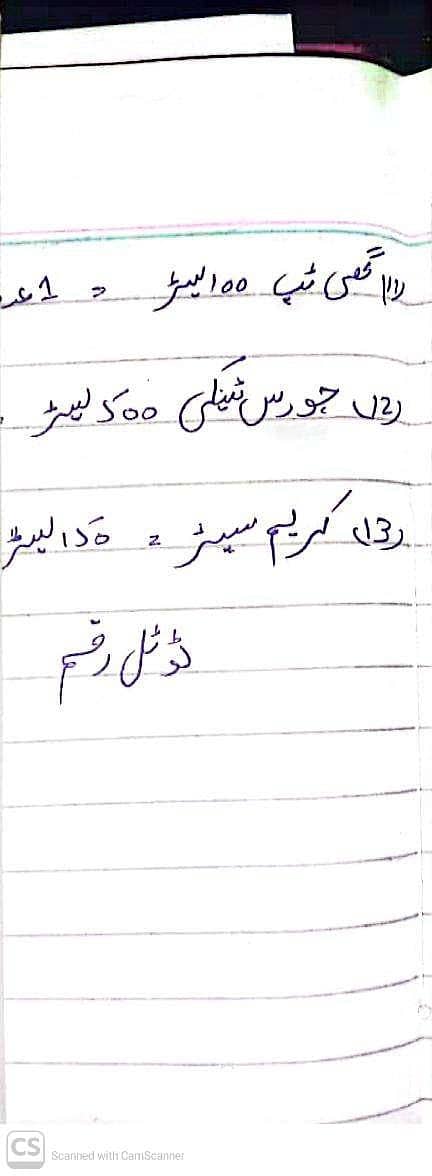 (1) گھی ٹپ 100 لیٹر = 1 عدد
(2) چورس ٹینکی 500 لیٹر
(3) کریم سیٹر = 150 لیٹر
ٹوٹل رقم
CS Scanned with CamScanner